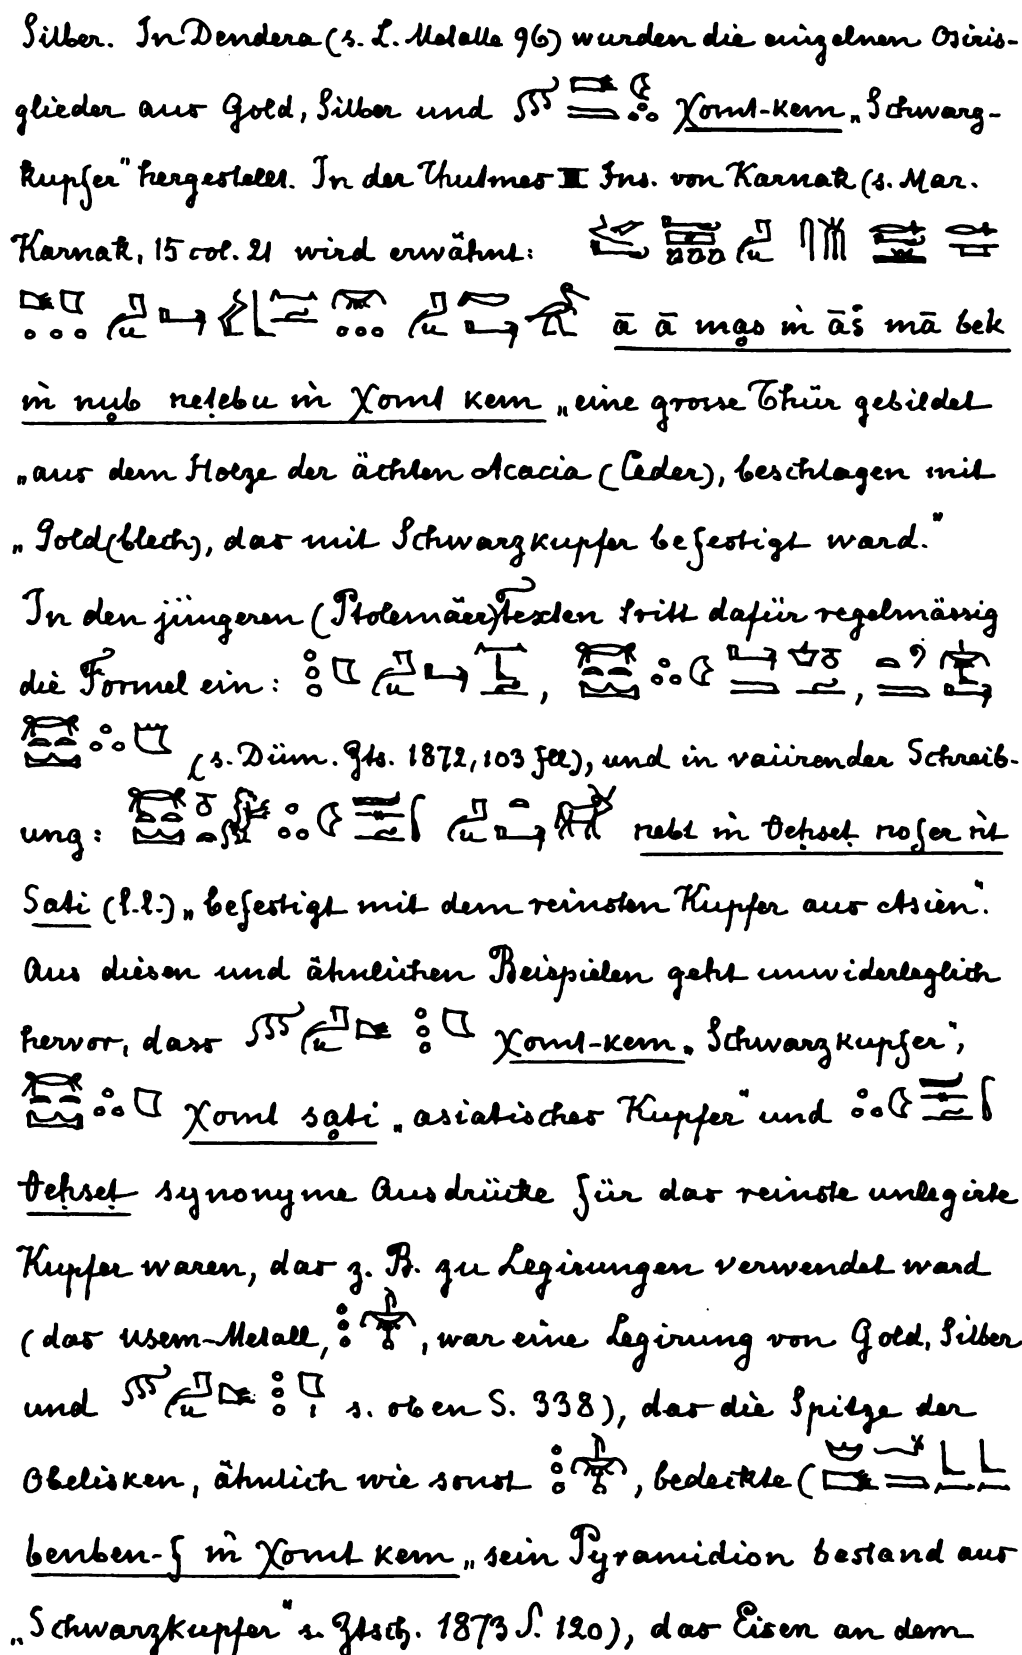 Silber. In Dendera (s. L. Metalle 96) wurden die einzelnen Osiris-
glieder aus Gold, Silber und χomt-kem „Schwarz-
kupfer" hergestellt. In der Thutmes III Ins. von Karnak (s. Mar.
Karnak, 15 col. 21 wird erwähnt:
āā mas ṁ āš mā bek
ṁ nub neṭebu ṁ χomt kem „eine grosse Thür gebildet
„aus dem Holze der ächten Acacia (Ceder), beschlagen mit
„Gold(blech), das mit Schwarzkupfer befestigt ward."
In den jüngeren (Ptolemäer) Texten tritt dafür regelmässig
die Formel ein: , ,
(s. Düm. Zts. 1872, 103 fll), und in variirender Schreib-
ung: nebt ṁ teḥset nofer ṅt
Sati (l.l.) „befestigt mit dem reinsten Kupfer aus Asien".
Aus diesen und ähnlichen Beispielen geht unwiderleglich
hervor, dass χomt-kem „Schwarzkupfer",
χomt sati „asiatisches Kupfer" und
teḥset synonyme Ausdrücke für das reinste unlegirte
Kupfer waren, das z. B. zu Legirungen verwendet ward
(das usem-Metall, , war eine Legirung von Gold, Silber
und s. oben S. 338), das die Spitze der
Obelisken, ähnlich wie sonst , bedeckte (
benben-f ṁ χomt kem „sein Pyramidion bestand aus
„Schwarzkupfer" s. Ztsch. 1873 S. 120), das Eisen an dem